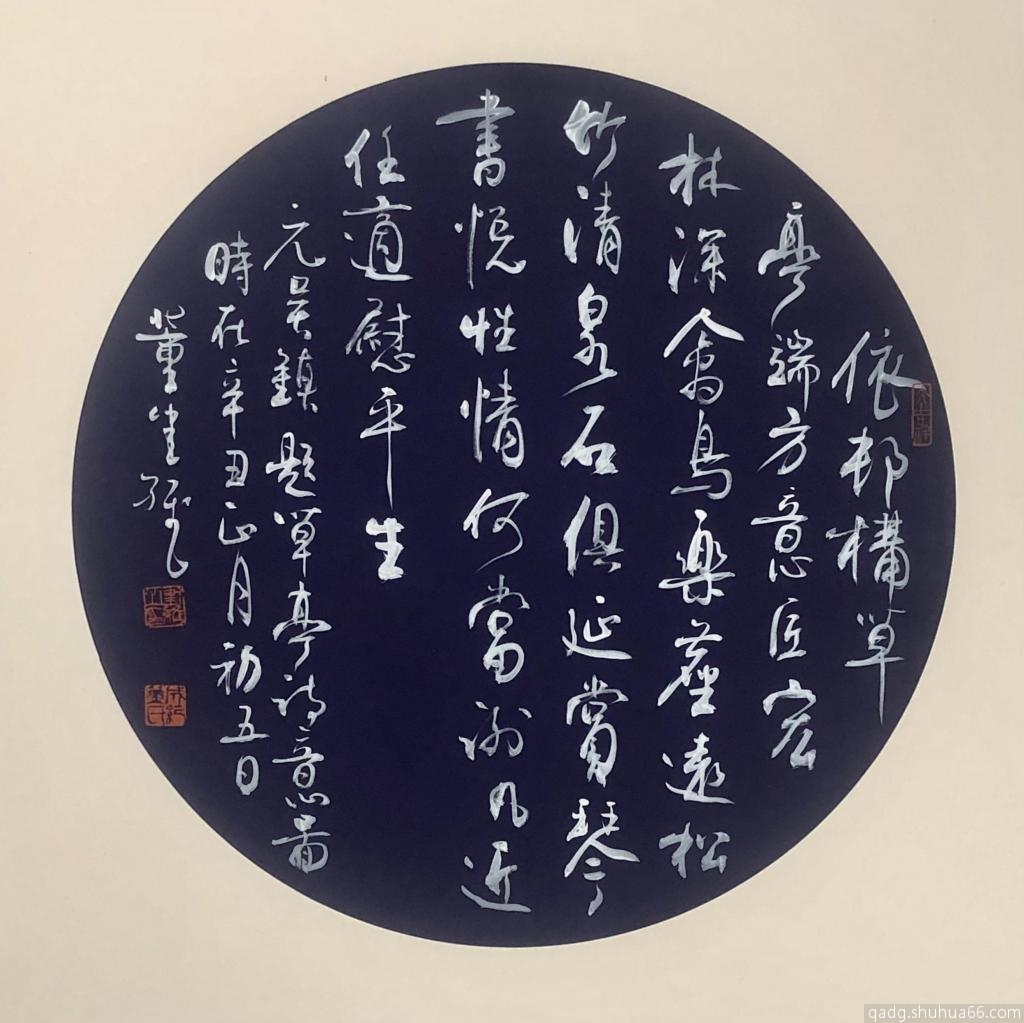 依邨構草
亭端方意匠宏
林深禽鳥樂塵遠松
竹清泉石俱延賞琴
書悦性情何當謝凡近
任適慰平生
元吴鎮題草亭詩意圖
時在辛丑正月初五日
董
qadg.shuhua66.com